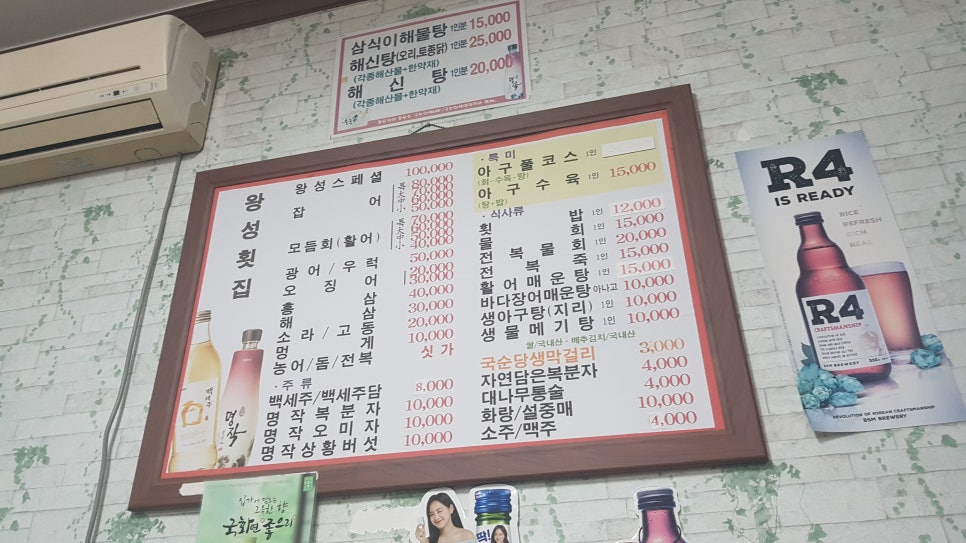 삼식이해물탕 1인분 15,000
해신탕(오리,토종닭) 1인분 25,000
(각종해산물+한약재)
해신탕 1인분 20,000
(각종해산물+한약재)
왕성횟집
왕성스페셜 100,000
잡어 특 80,000
대 70,000
中 60,000
小 50,000
모듬회(활어) 특 70,000
大 60,000
中 50,000
小 40,000
광어/우럭 50,000
오징어 20,000
30,000
홍삼 40,000
해삼 30,000
소라/고동 20,000
멍게 10,000
농어/돔/전복 싯가
·주류
백세주/백세주담 8,000
명작복분자 10,000
명작오미자 10,000
명작상황버섯 10,000
·특미
아구풀코스 1인
(회·수육·탕)
아구수육 1인 15,000
(탕+밥)
·식사류
횟밥 1인 12,000
물회 1인 15,000
전복물회 1인 20,000
전복죽 1인 15,000
활어매운탕 1인 15,000
바다장어매운탕 아나고 10,000
생아구탕(지리) 1인 10,000
생물메기탕 1인 10,000
쌀/국내산·배추김치/국내산
국순당생막걸리 3,000
자연담은복분자 4,000
대나무통술 4,000
화랑/설중매 10,000
소주/맥주 4,000
백세주
명작
R4
IS READY
RICE
REFRESH
RICH
REAL
R4
CRAFTSMANSHIP
REVOLUTION OF KOREAN CRAFTSMANSHIP
BSM BREWERY
입가에 맴도는
그윽한 향
국화면 좋으리